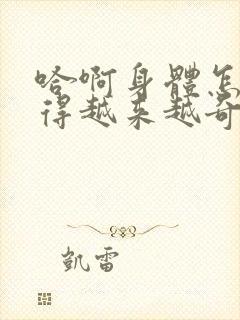 哈啊身體怎
得越来越奇
凱雷